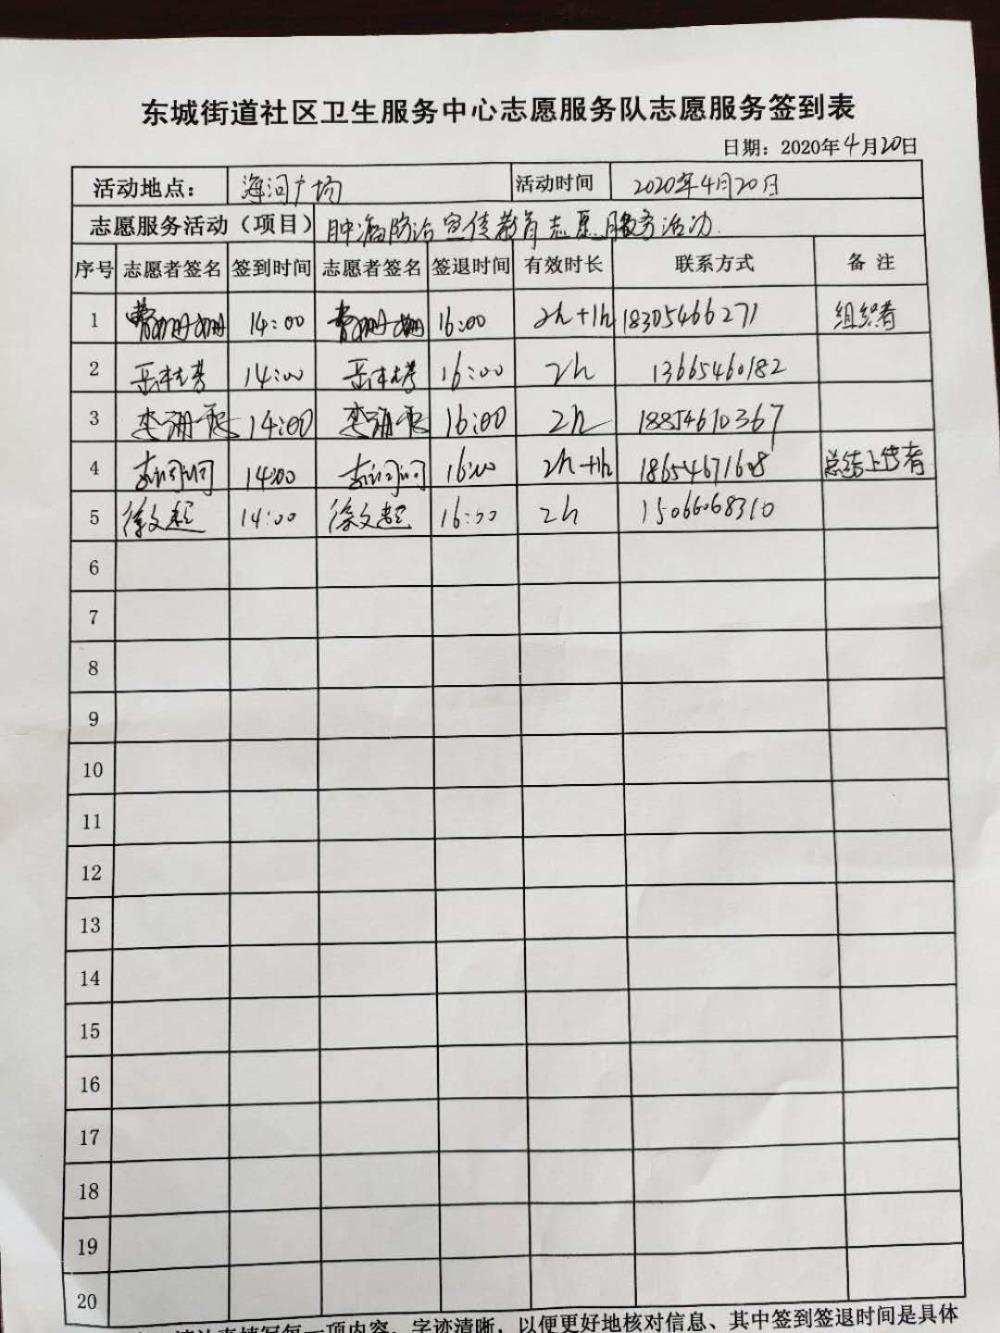 东城街道社区卫生服务中心志愿服务队志愿服务签到表
日期：2020年4月20日
活动地点： 海河广场 活动时间 2020年4月20日
志愿服务活动（项目） 肿瘤防治宣传教育志愿服务活动
序号 志愿者签名 签到时间 志愿者签名 签退时间 有效时长 联系方式 备 注
1 曹姗姗 14:00 曹姗姗 16:00 2h+1h 18305466271 组织者
2 14:00 16:00 2h 13665460182
3 14:00 16:00 2h 18854610367
4 14:00 16:00 2h+1h 18654671608 总结上传者
5 徐文超 14:00 徐文超 16:00 2h 15066068310
6
7
8
9
10
11
12
13
14
15
16
17
18
19
20
填写每一项内容，字迹清晰，以便更好地核对信息、其中签到签退时间是具体